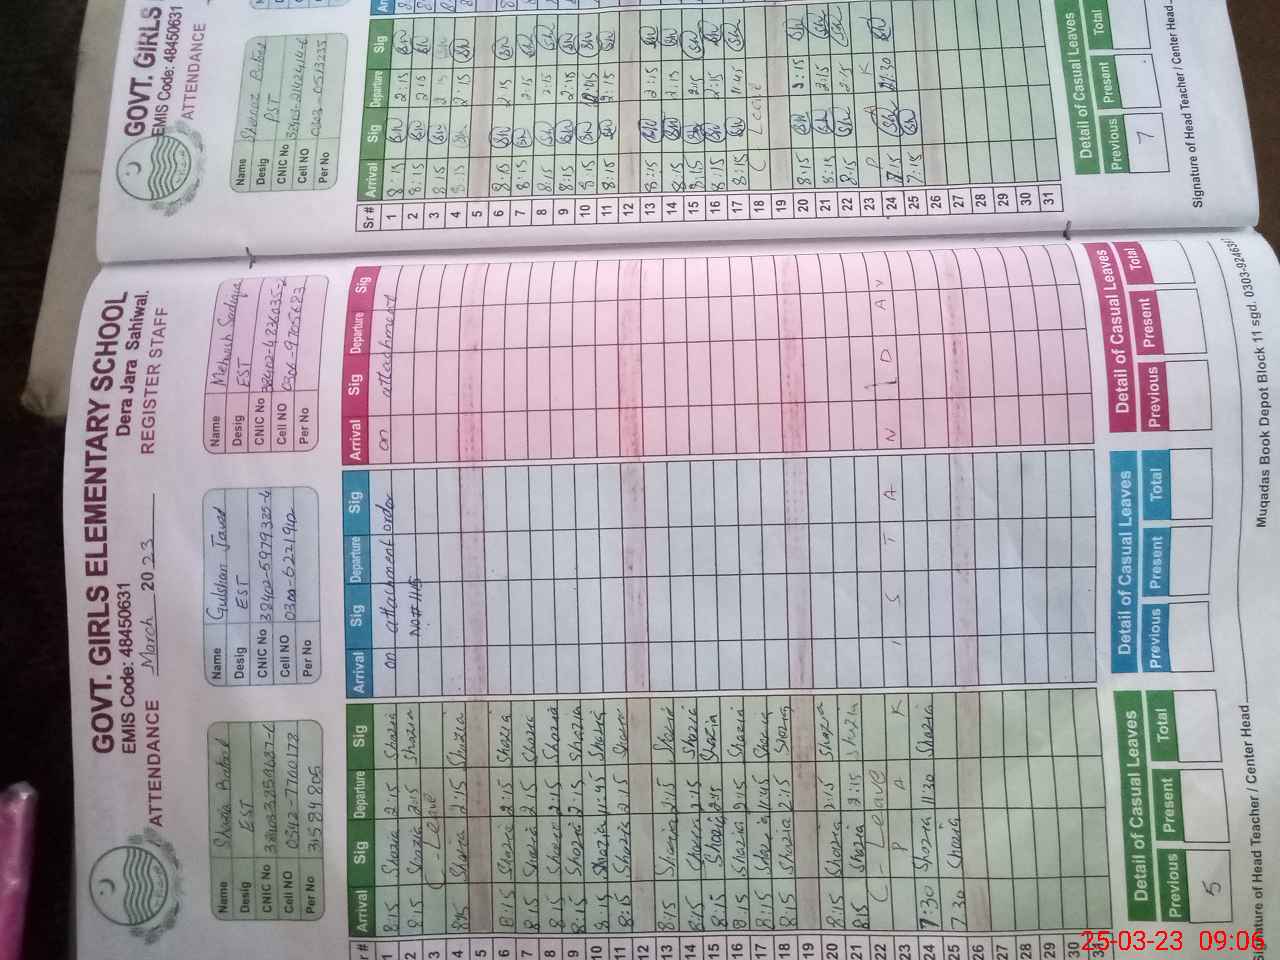 GOVT. GIRLS ELEMENTARY SCHOOL
EMIS Code: 48450631
Dera Jara Sahiwal.
ATTENDANCE March 2023 REGISTER STAFF
Name Shazia
Desig EST
CNIC No
Cell NO 0342-7700178
Per No 31584805
Name Gulshan Javed
Desig EST
CNIC No 38402-5979385-6
Cell NO 0300-6221942
Per No
Name Mehwish
Desig EST
CNIC No
Cell NO 0306-9705683
Per No
Arrival Sig Departure Sig
Arrival Sig Departure Sig
Arrival Sig Departure Sig
1 8:15 Shazia 2:15 Shazia on attachment order on attachment
2 8:15 Shazia 2:15 Shazia No # 1145
3 C-Leave
4 8:15 Shazia 2:15 Shazia
5
6 8:15 Shazia 2:15 Shazia
7 8:15 Shazia 2:15 Shazia
8 8:15 Shazia 2:15 Shazia
9 8:15 Shazia 2:15 Shazia
10 8:15 Shazia 11:45 Shazia
11 8:15 Shazia 2:15 Shazia
12
13 8:15 Shazia 2:15 Shazia
14 8:15 Shazia 2:15 Shazia
15 8:15 Shazia 2:15 Shazia
16 8:15 Shazia 2:15 Shazia
17 8:15 Shazia 11:45 Shazia
18 8:15 Shazia 2:15 Shazia
19
20 8:15 Shazia 2:15 Shazia
21 8:15 Shazia 2:15 Shazia
22 C-Leave
23 P A K I S T A N D A Y
24 7:30 Shazia 11:30 Shazia
25 7:30 Shazia
26
27
28
29
30
31
Detail of Casual Leaves
Previous Present Total
5
Detail of Casual Leaves
Previous Present Total
Detail of Casual Leaves
Previous Present Total
Signature of Head Teacher / Center Head
Muqadas Book Depot Block 11 sgd. 0303-92463
GOVT. GIRLS
EMIS Code: 48450631
ATTENDANCE
Name
Desig PST
CNIC No
Cell NO
Per No
Sr# Arrival Sig Departure Sig
1 8:15 2:15
2 8:15 2:15
3 8:15 2:15
4 8:15 2:15
5
6 8:15 2:15
7 8:15 2:15
8 8:15 2:15
9 8:15 2:15
10 8:15
11 8:15 2:15
12
13 8:15 2:15
14 8:15 2:15
15 8:15 2:15
16 8:15 2:15
17 8:15 11:45
18 C Leave
19
20 8:15 2:15
21 8:15 2:15
22 8:15 2:15
23 P A K
24 7:15 11:30
25 7:15
26
27
28
29
30
31
Detail of Casual Leaves
Previous Present Total
7
Signature of Head Teacher / Center Head
25-03-23 09:06